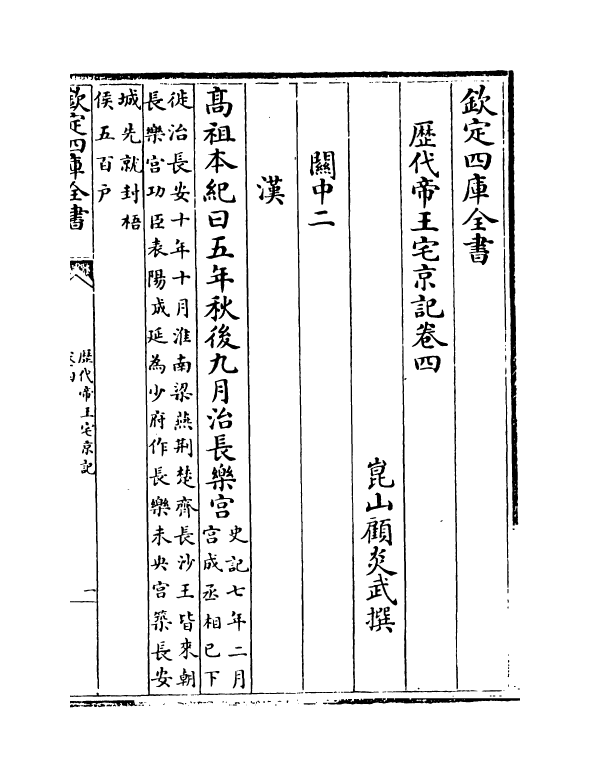 欽定四庫全書
歷代帝王宅京記卷四
崑山顧炎武撰
關中二
漢
髙祖本紀曰五年秋後九月治長樂宫
史記七年二月
宫成丞相已下
徙治長安十年十月淮南梁燕荆楚齊長沙王皆來朝
長樂宫功臣表陽成延為少府作長樂未央宫築長安
城先就封梧
侯五百户
欽定四庫全書
歷代帝王宅京記
一